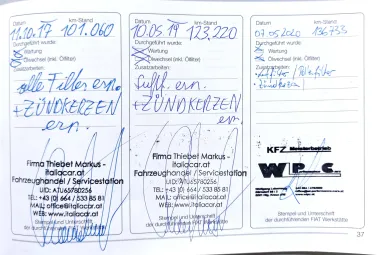 Datum km-Stand
11.10.17 101.060
Durchgeführt wurde:
Wartung
Ölwechsel (inkl. Ölfilter)
Zusatzarbeiten:
alle Filter ern.
+ ZÜNDKERZEN
ern.
Firma Thiebet Markus -
italiacar.at
Fahrzeughandel / Servicestation
UID: ATU65780256
TEL: +43 (0) 664 / 533 85 81
MAIL: office@italiacar.at
WEB: www.italiacar.at
Stempel und Unterschrift
der durchführenden FIAT Werkstätte
Datum km-Stand
10.05.19 123,220
Durchgeführt wurde:
Wartung
Ölwechsel (inkl. Ölfilter)
Zusatzarbeiten:
Luff. ern.
+ ZÜNDKERZEN
ern.
Firma Thiebet Markus -
italiacar.at
Fahrzeughandel / Servicestation
UID: ATU65780256
TEL: +43 (0) 664 / 533 85 81
MAIL: office@italiacar.at
WEB: www.italiacar.at
Stempel und Unterschrift
der durchführenden FIAT Werkstätte
Datum km-Stand
07 05 2020 136733
Durchgeführt wurde:
Wartung
Ölwechsel (inkl. Ölfilter)
Zusatzarbeiten:
Zündkerzen
KFZ Meisterbetrieb
Stempel und Unterschrift
der durchführenden FIAT Werkstätte
37